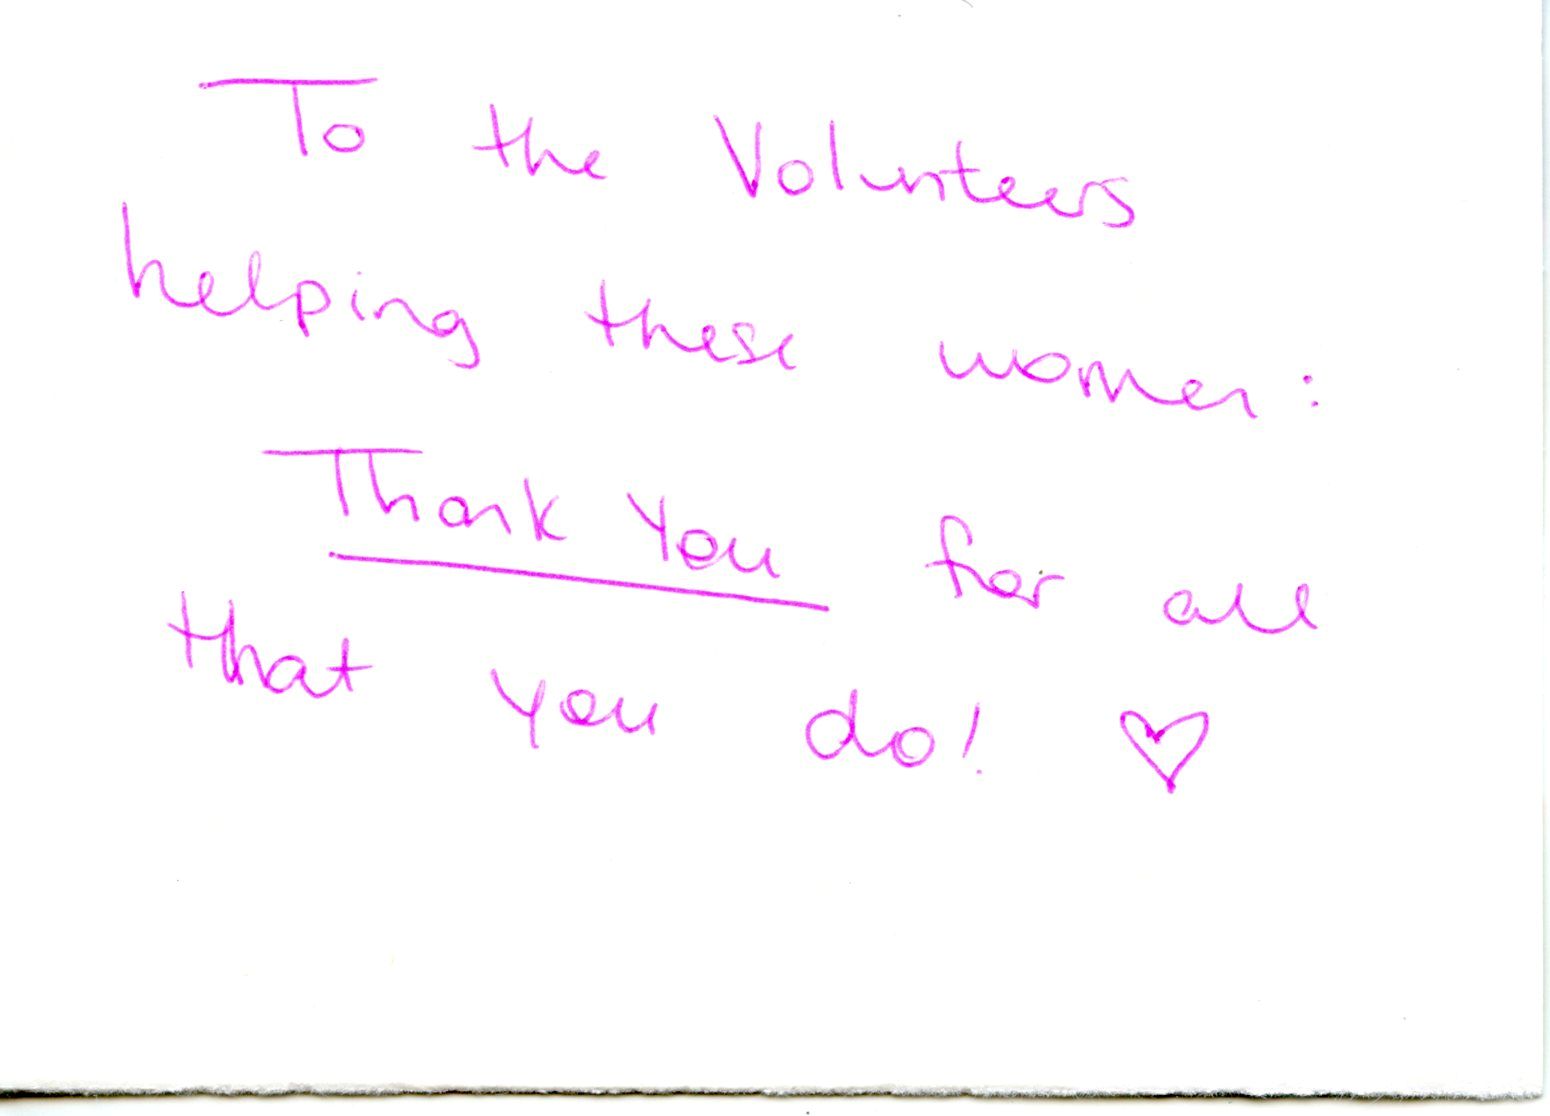 To the Volunteers
helping these women:
Thank You for all
that you do! ♡